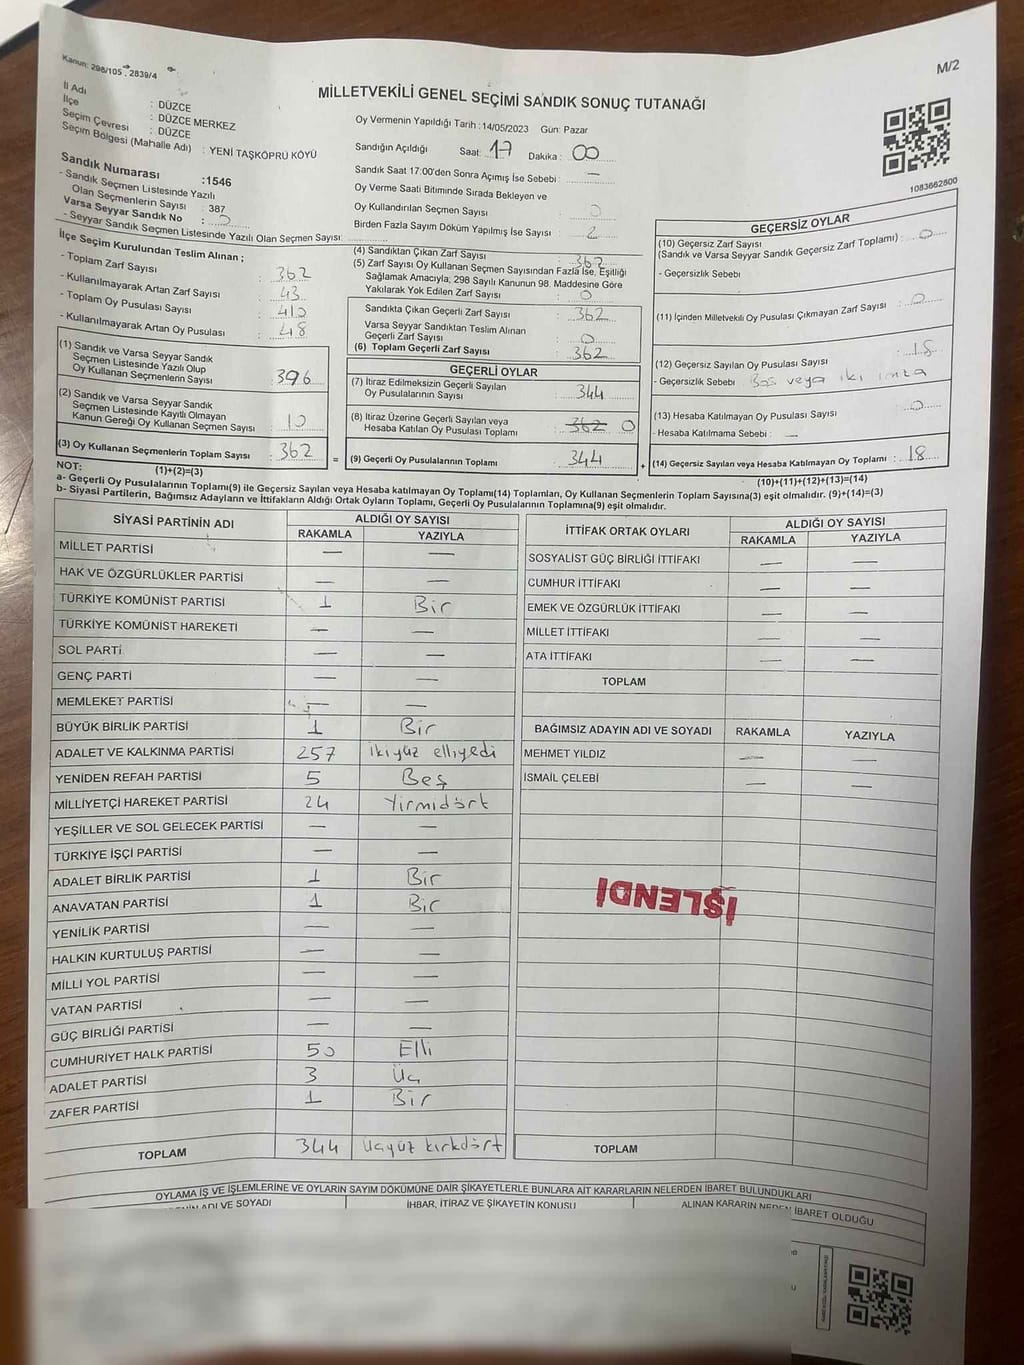 Kanun: 298/105 , 2839/4
M/2
MİLLETVEKİLİ GENEL SEÇİMİ SANDIK SONUÇ TUTANAĞI
İl Adı : DÜZCE
İlçe : DÜZCE MERKEZ
Seçim Çevresi : DÜZCE
Seçim Bölgesi (Mahalle Adı) : YENİ TAŞKÖPRÜ KÖYÜ
Sandık Numarası :1546
- Sandık Seçmen Listesinde Yazılı
Olan Seçmenlerin Sayısı : 387
Varsa Seyyar Sandık No : 0
- Seyyar Sandık Seçmen Listesinde Yazılı Olan Seçmen Sayısı:
Oy Vermenin Yapıldığı Tarih :14/05/2023 Gün: Pazar
Sandığın Açıldığı Saat: 17 Dakika : 00
Sandık Saat 17:00'den Sonra Açımış İse Sebebi : —
Oy Verme Saati Bitiminde Sırada Bekleyen ve
Oy Kullandırılan Seçmen Sayısı : 0
Birden Fazla Sayım Döküm Yapılmış İse Sayısı : 2
1083662800
İlçe Seçim Kurulundan Teslim Alınan ;
- Toplam Zarf Sayısı : 362
- Kullanılmayarak Artan Zarf Sayısı : 43
- Toplam Oy Pusulası Sayısı : 410
- Kullanılmayarak Artan Oy Pusulası : 48
(1) Sandık ve Varsa Seyyar Sandık
Seçmen Listesinde Yazılı Olup
Oy Kullanan Seçmenlerin Sayısı : 396
(2) Sandık ve Varsa Seyyar Sandık
Seçmen Listesinde Kayıtlı Olmayan
Kanun Gereği Oy Kullanan Seçmen Sayısı : 10
(3) Oy Kullanan Seçmenlerin Toplam Sayısı : 362
(1)+(2)=(3)
(4) Sandıktan Çıkan Zarf Sayısı : 362
(5) Zarf Sayısı Oy Kullanan Seçmen Sayısından Fazla İse, Eşitliği
Sağlamak Amacıyla, 298 Sayılı Kanunun 98. Maddesine Göre
Yakılarak Yok Edilen Zarf Sayısı : 0
Sandıkta Çıkan Geçerli Zarf Sayısı : 362
Varsa Seyyar Sandıktan Teslim Alınan
Geçerli Zarf Sayısı : 0
(6) Toplam Geçerli Zarf Sayısı : 362
GEÇERLİ OYLAR
(7) İtiraz Edilmeksizin Geçerli Sayılan
Oy Pusulalarının Sayısı : 344
(8) İtiraz Üzerine Geçerli Sayılan veya
Hesaba Katılan Oy Pusulası Toplamı : 362 0
= (9) Geçerli Oy Pusulalarının Toplamı : 344 +
GEÇERSİZ OYLAR
(10) Geçersiz Zarf Sayısı
(Sandık ve Varsa Seyyar Sandık Geçersiz Zarf Toplamı) : 0
- Geçersizlik Sebebi
(11) İçinden Milletvekili Oy Pusulası Çıkmayan Zarf Sayısı : 0
(12) Geçersiz Sayılan Oy Pusulası Sayısı : 18
- Geçersizlik Sebebi : Boş veya iki imza
(13) Hesaba Katılmayan Oy Pusulası Sayısı : 0
- Hesaba Katılmama Sebebi : —
(14) Geçersiz Sayılan veya Hesaba Katılmayan Oy Toplamı : 18
(10)+(11)+(12)+(13)=(14)
NOT:
a- Geçerli Oy Pusulalarının Toplamı(9) ile Geçersiz Sayılan veya Hesaba katılmayan Oy Toplamı(14) Toplamları, Oy Kullanan Seçmenlerin Toplam Sayısına(3) eşit olmalıdır. (9)+(14)=(3)
b- Siyasi Partilerin, Bağımsız Adayların ve İttifakların Aldığı Ortak Oyların Toplamı, Geçerli Oy Pusulalarının Toplamına(9) eşit olmalıdır.
SİYASİ PARTİNİN ADI ALDIĞI OY SAYISI
RAKAMLA YAZIYLA
MİLLET PARTİSİ — —
HAK VE ÖZGÜRLÜKLER PARTİSİ — —
TÜRKİYE KOMÜNİST PARTİSİ 1 Bir
TÜRKİYE KOMÜNİST HAREKETİ — —
SOL PARTİ — —
GENÇ PARTİ — —
MEMLEKET PARTİSİ — —
BÜYÜK BİRLİK PARTİSİ 1 Bir
ADALET VE KALKINMA PARTİSİ 257 ikiyüz elliyedi
YENİDEN REFAH PARTİSİ 5 Beş
MİLLİYETÇİ HAREKET PARTİSİ 24 Yirmidört
YEŞİLLER VE SOL GELECEK PARTİSİ — —
TÜRKİYE İŞÇİ PARTİSİ — —
ADALET BİRLİK PARTİSİ 1 Bir
ANAVATAN PARTİSİ 1 Bir
YENİLİK PARTİSİ — —
HALKIN KURTULUŞ PARTİSİ — —
MİLLİ YOL PARTİSİ — —
VATAN PARTİSİ — —
GÜÇ BİRLİĞİ PARTİSİ — —
CUMHURİYET HALK PARTİSİ 50 Elli
ADALET PARTİSİ 3 Üç
ZAFER PARTİSİ 1 Bir
TOPLAM 344 üçyüz kırkdört
İTTİFAK ORTAK OYLARI ALDIĞI OY SAYISI
RAKAMLA YAZIYLA
SOSYALİST GÜÇ BİRLİĞİ İTTİFAKI — —
CUMHUR İTTİFAKI — —
EMEK VE ÖZGÜRLÜK İTTİFAKI — —
MİLLET İTTİFAKI — —
ATA İTTİFAKI — —
TOPLAM
BAĞIMSIZ ADAYIN ADI VE SOYADI RAKAMLA YAZIYLA
MEHMET YILDIZ — —
İSMAİL ÇELEBİ — —
İŞLENDİ
TOPLAM
OYLAMA İŞ VE İŞLEMLERİNE VE OYLARIN SAYIM DÖKÜMÜNE DAİR ŞİKAYETLERLE BUNLARA AİT KARARLARIN NELERDEN İBARET BULUNDUKLARI
ADI VE SOYADI İHBAR, İTİRAZ VE ŞİKAYETİN KONUSU ALINAN KARARIN NEDEN İBARET OLDUĞU